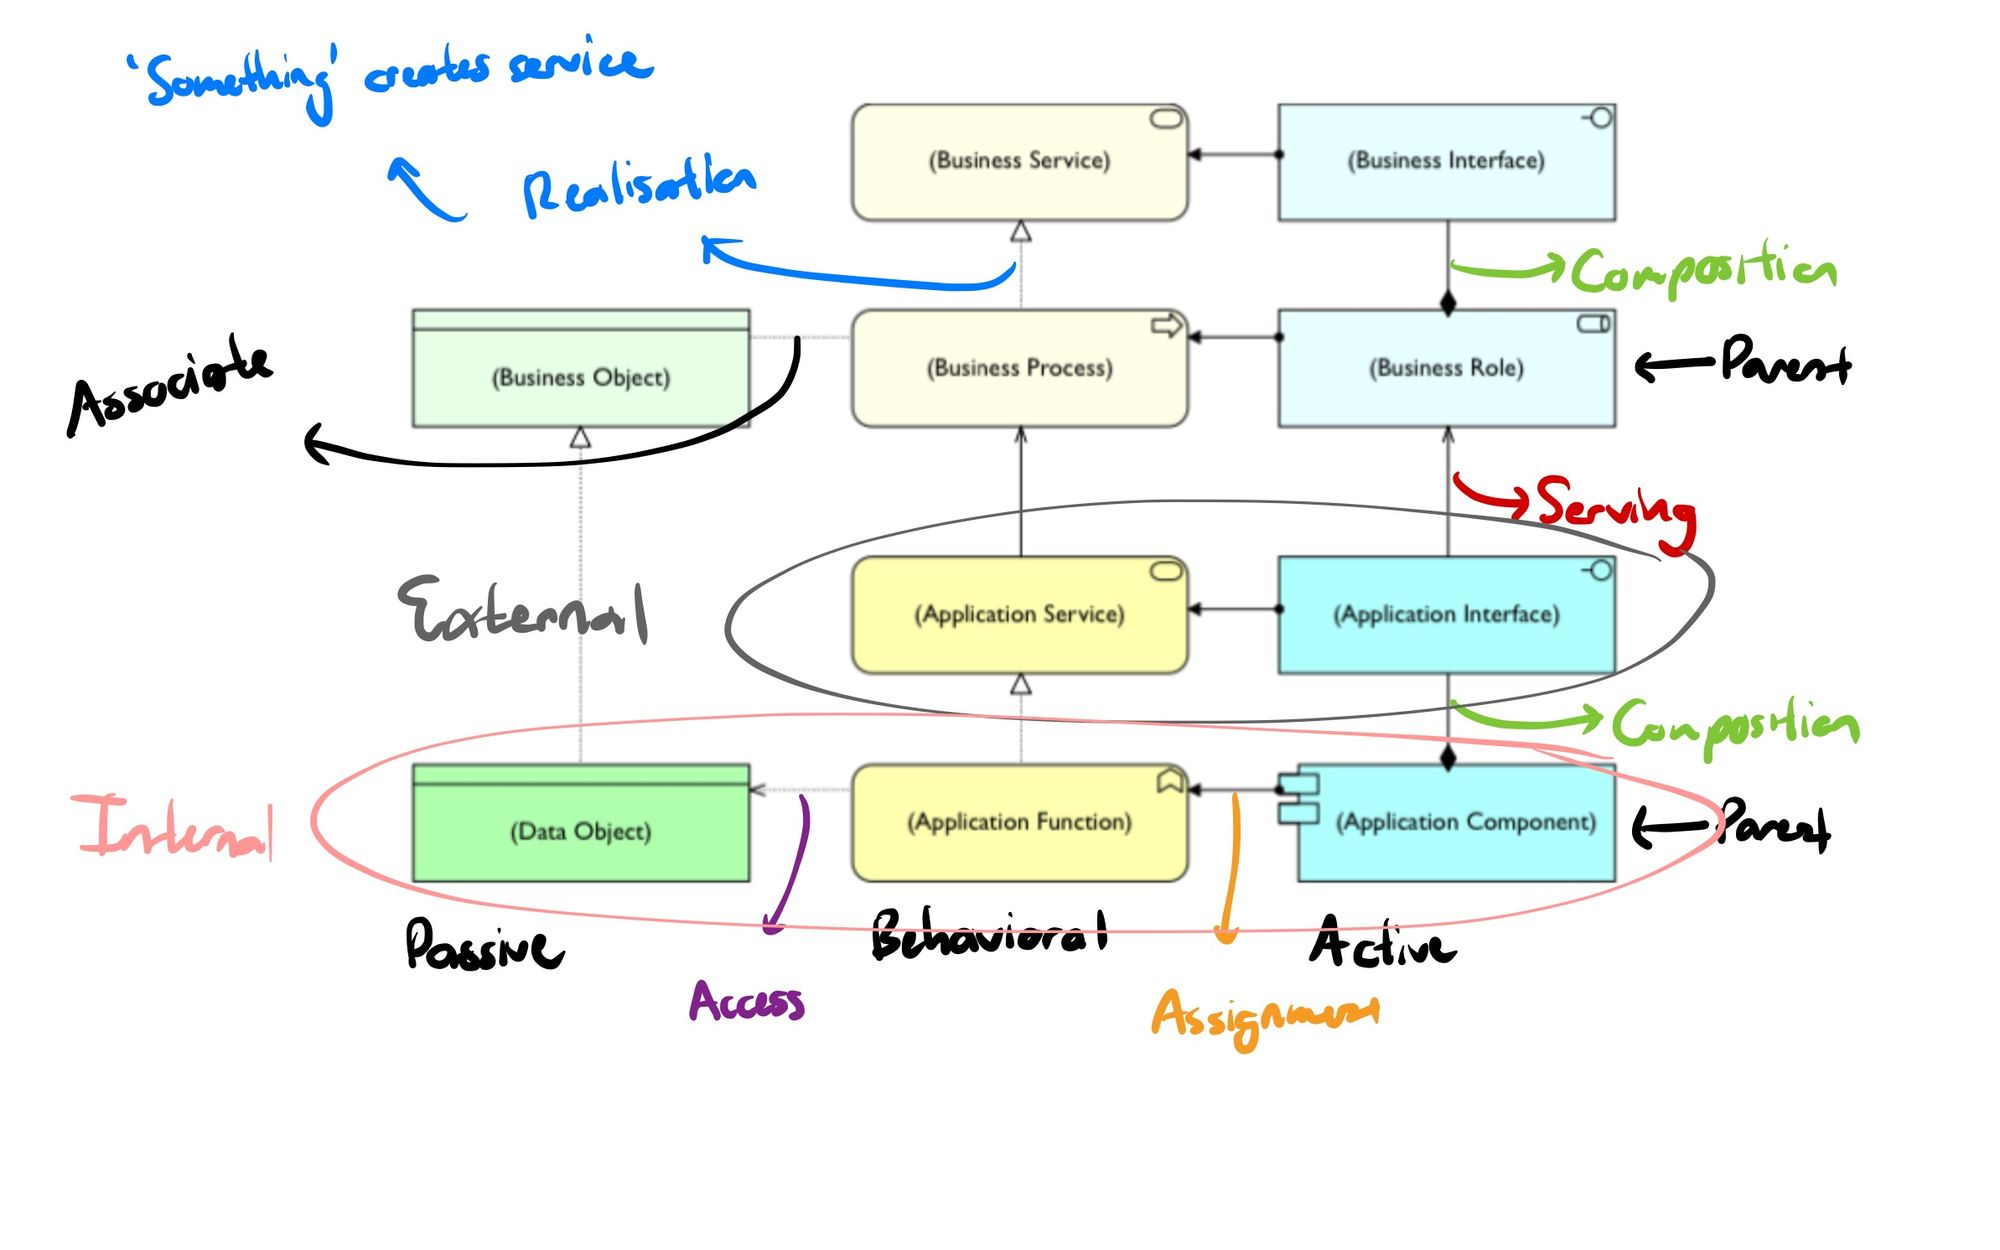 'Something' creates service
Realisation
(Business Service)
(Business Interface)
Composition
Associate
(Business Object)
(Business Process)
(Business Role)
Parent
Serving
External
(Application Service)
(Application Interface)
Composition
Internal
(Data Object)
(Application Function)
(Application Component)
Parent
Passive
Behavioral
Active
Access
Assignment